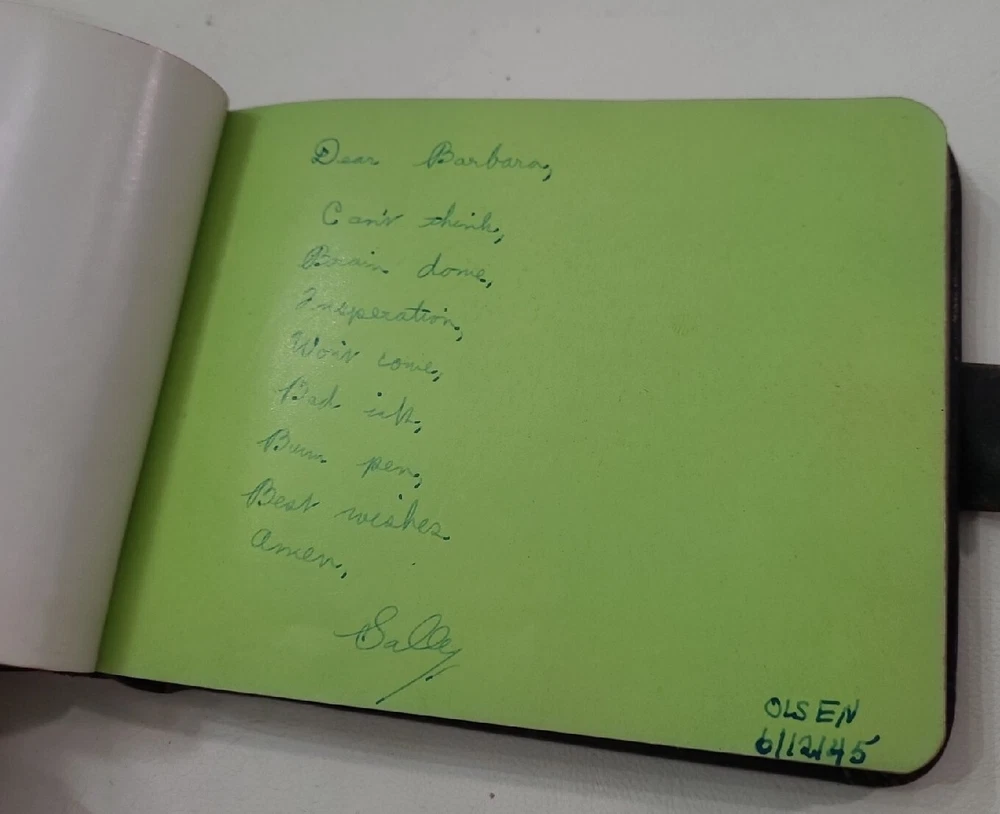 Dear Barbara,
Can't think,
Brain dome,
Insperation,
Won't come,
Bad ink,
Bum pen,
Best wishes
Amen,
Sally
OLSEN
6/12/45